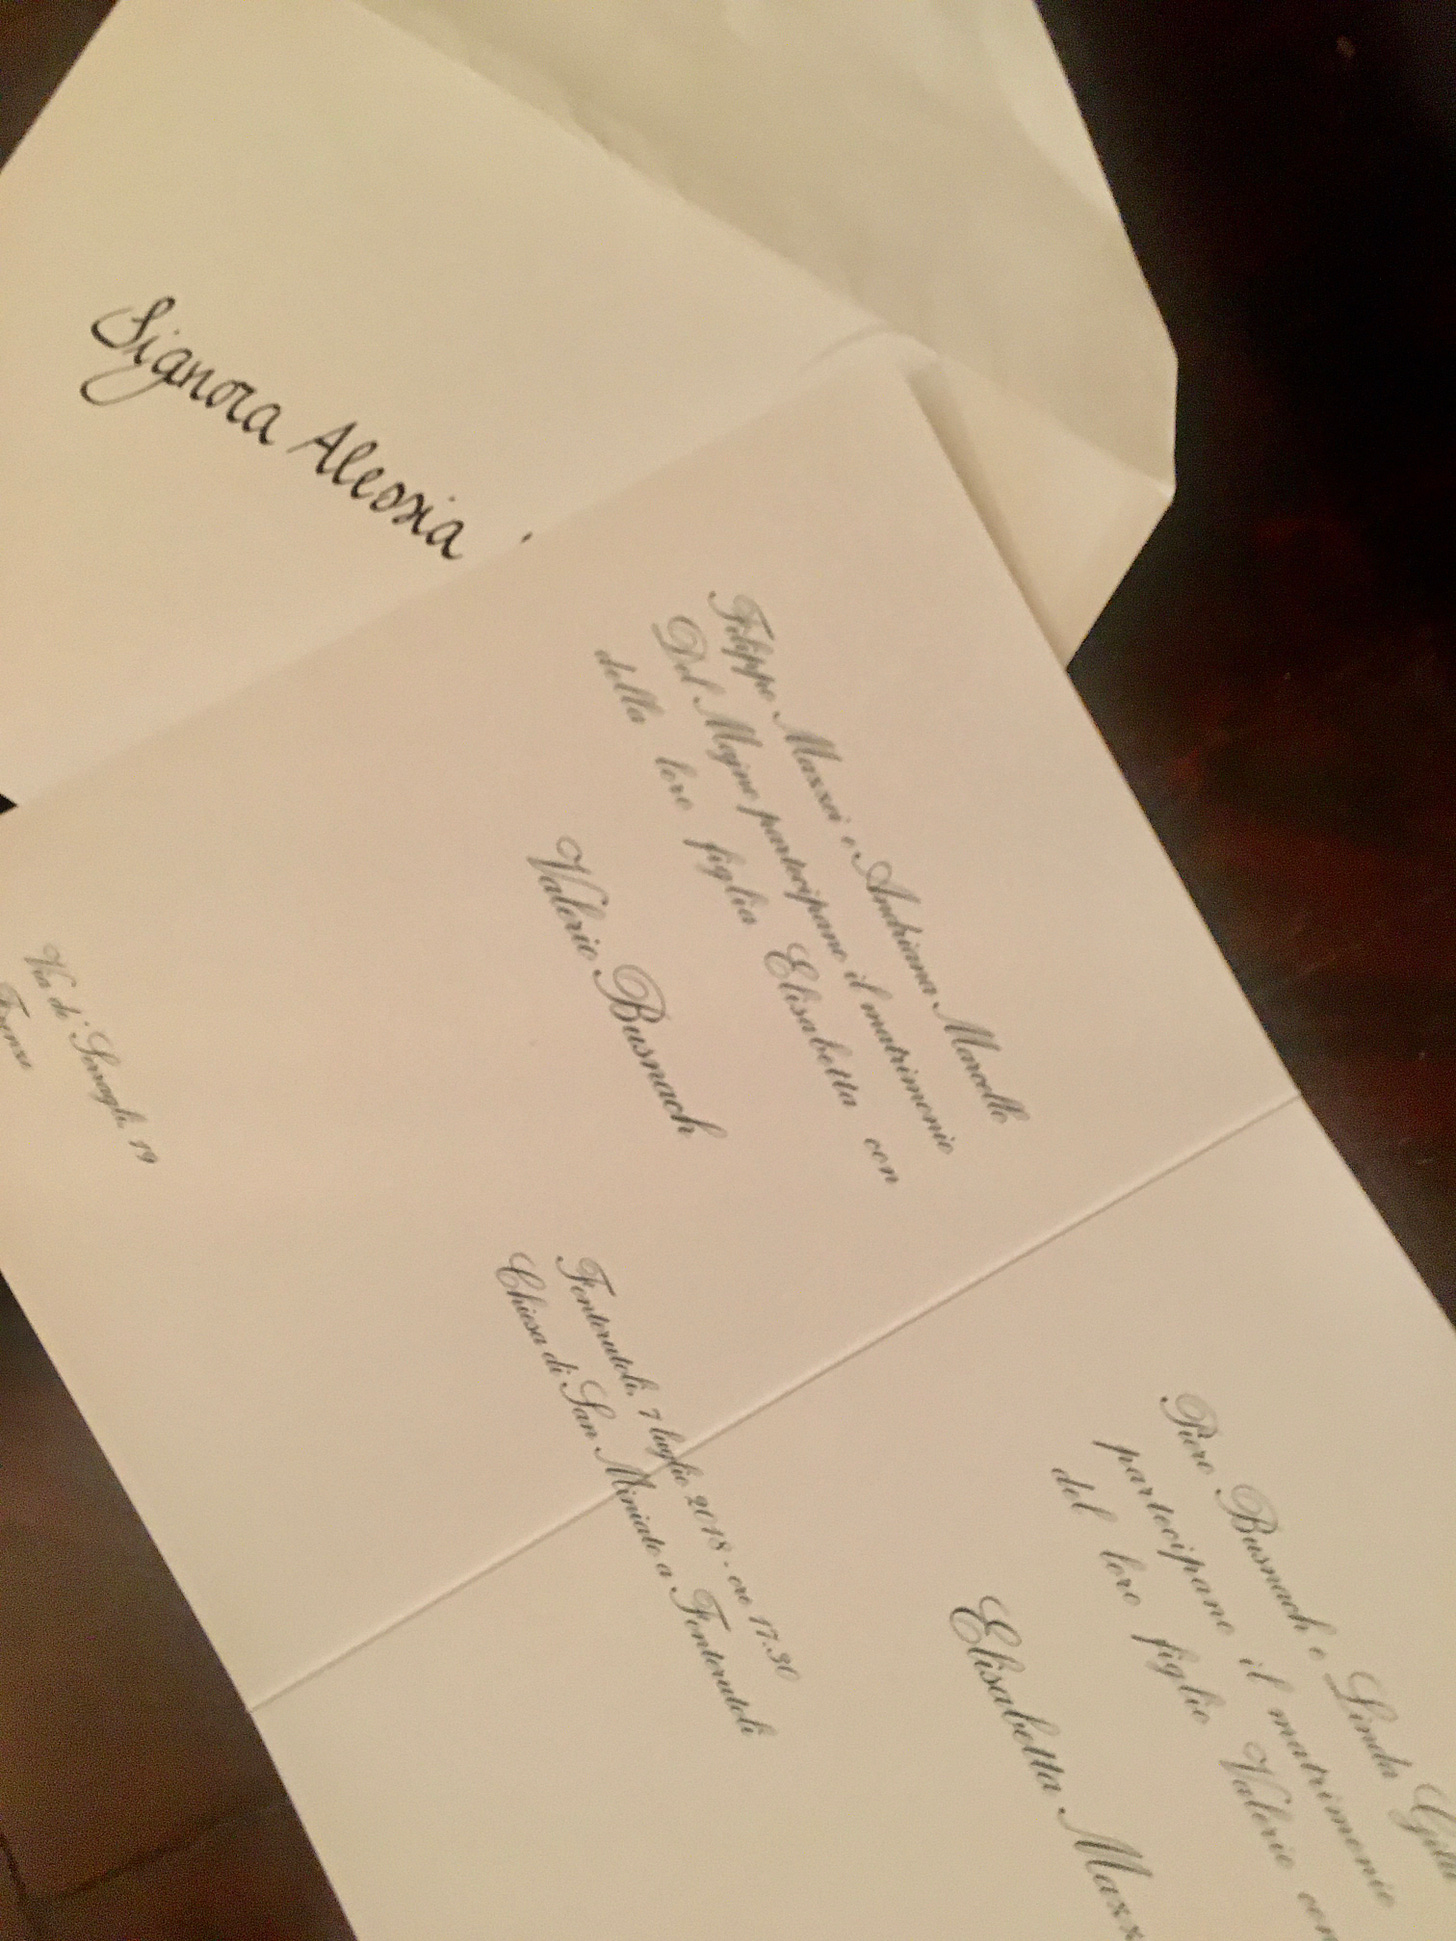 Signora Alessia
Filippo Mazzei e Andriana Marcello
Del Majno partecipano il matrimonio
della loro figlia Elisabetta con
Valerio Busnach
Via de' Serragli, 19
Firenze
Fonterutoli, 7 luglio 2018 - ore 17.30
Chiesa di San Miniato a Fonterutoli
Piero Busnach e Linda
partecipano il matrimonio
del loro figlio Valerio con
Elisabetta